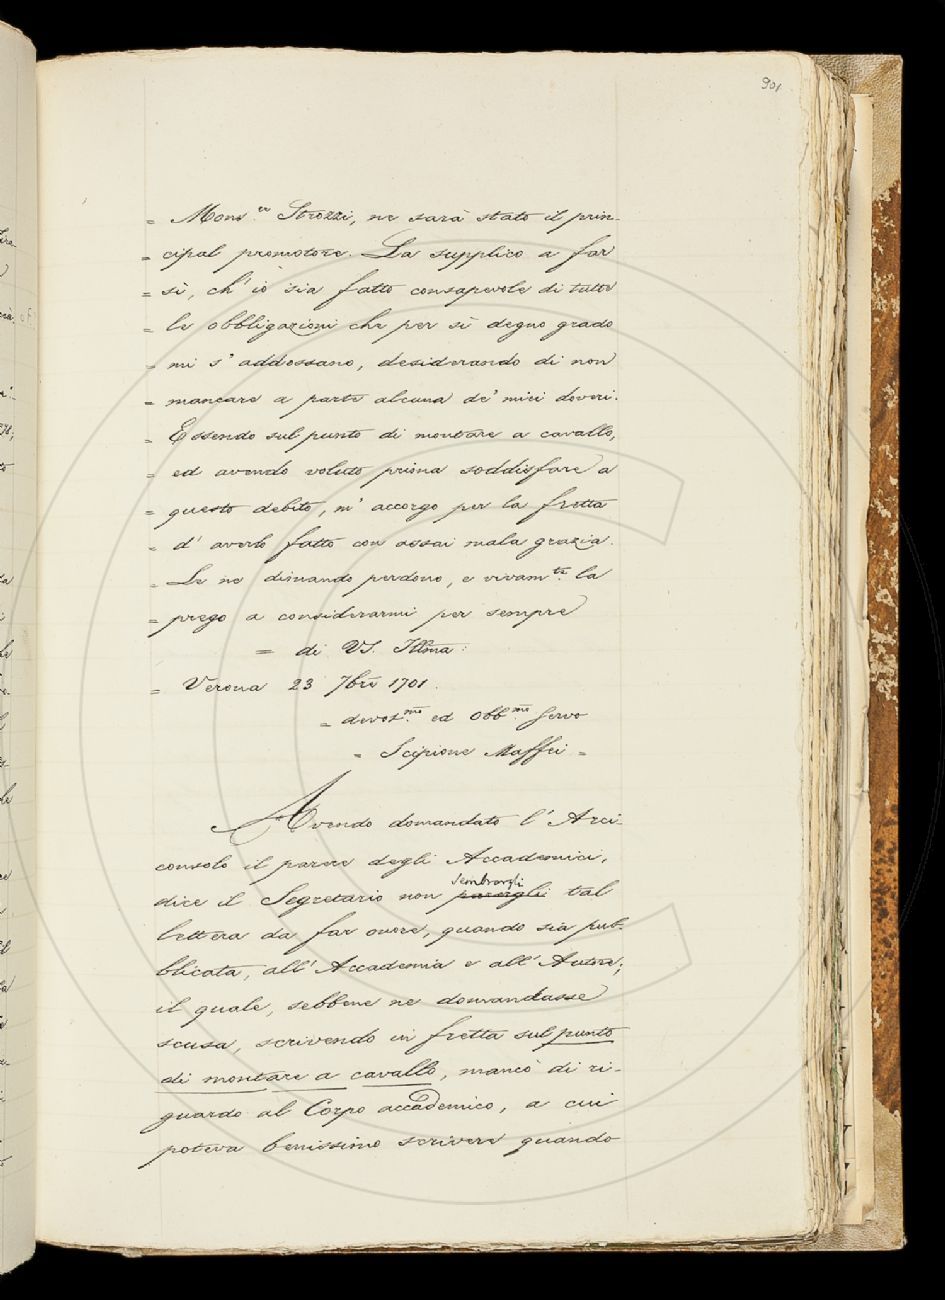 901
= Mons.er Strozzi, ne sarà stato il prin-
= cipal promotore. La supplico a far
= sì, ch' io sia fatto consapevole di tutte
= le obbligazioni che per sì degno grado
= mi s' addossano, desiderando di non
= mancare a parte alcuna de' miei doveri.
= Essendo sul punto di montare a cavallo,
= ed avendo voluto prima soddisfare a
= questo debito, m' accorgo per la fretta
= d' averlo fatto con assai mala grazia.
= Le ne dimando perdono, e vivam.te la
= prego a considerarmi per sempre
= di VS. Illma:
= Verona 23 7bre 1701.
= devot.mo ed Obb.mo servo
= Scipione Maffei =
Avendo domandato l' Arci-
consolo il parere degli Accademici,
dice il Segretario non parergli sembrargli tal
lettera da far onore, quando sia pub-
blicata, all' Accademia e all' Autore;
il quale, sebbene ne domandasse
scusa, scrivendo in fretta sul punto
di montare a cavallo, mancò di ri-
guardo al Corpo accademico, a cui
poteva benissimo scrivere quando